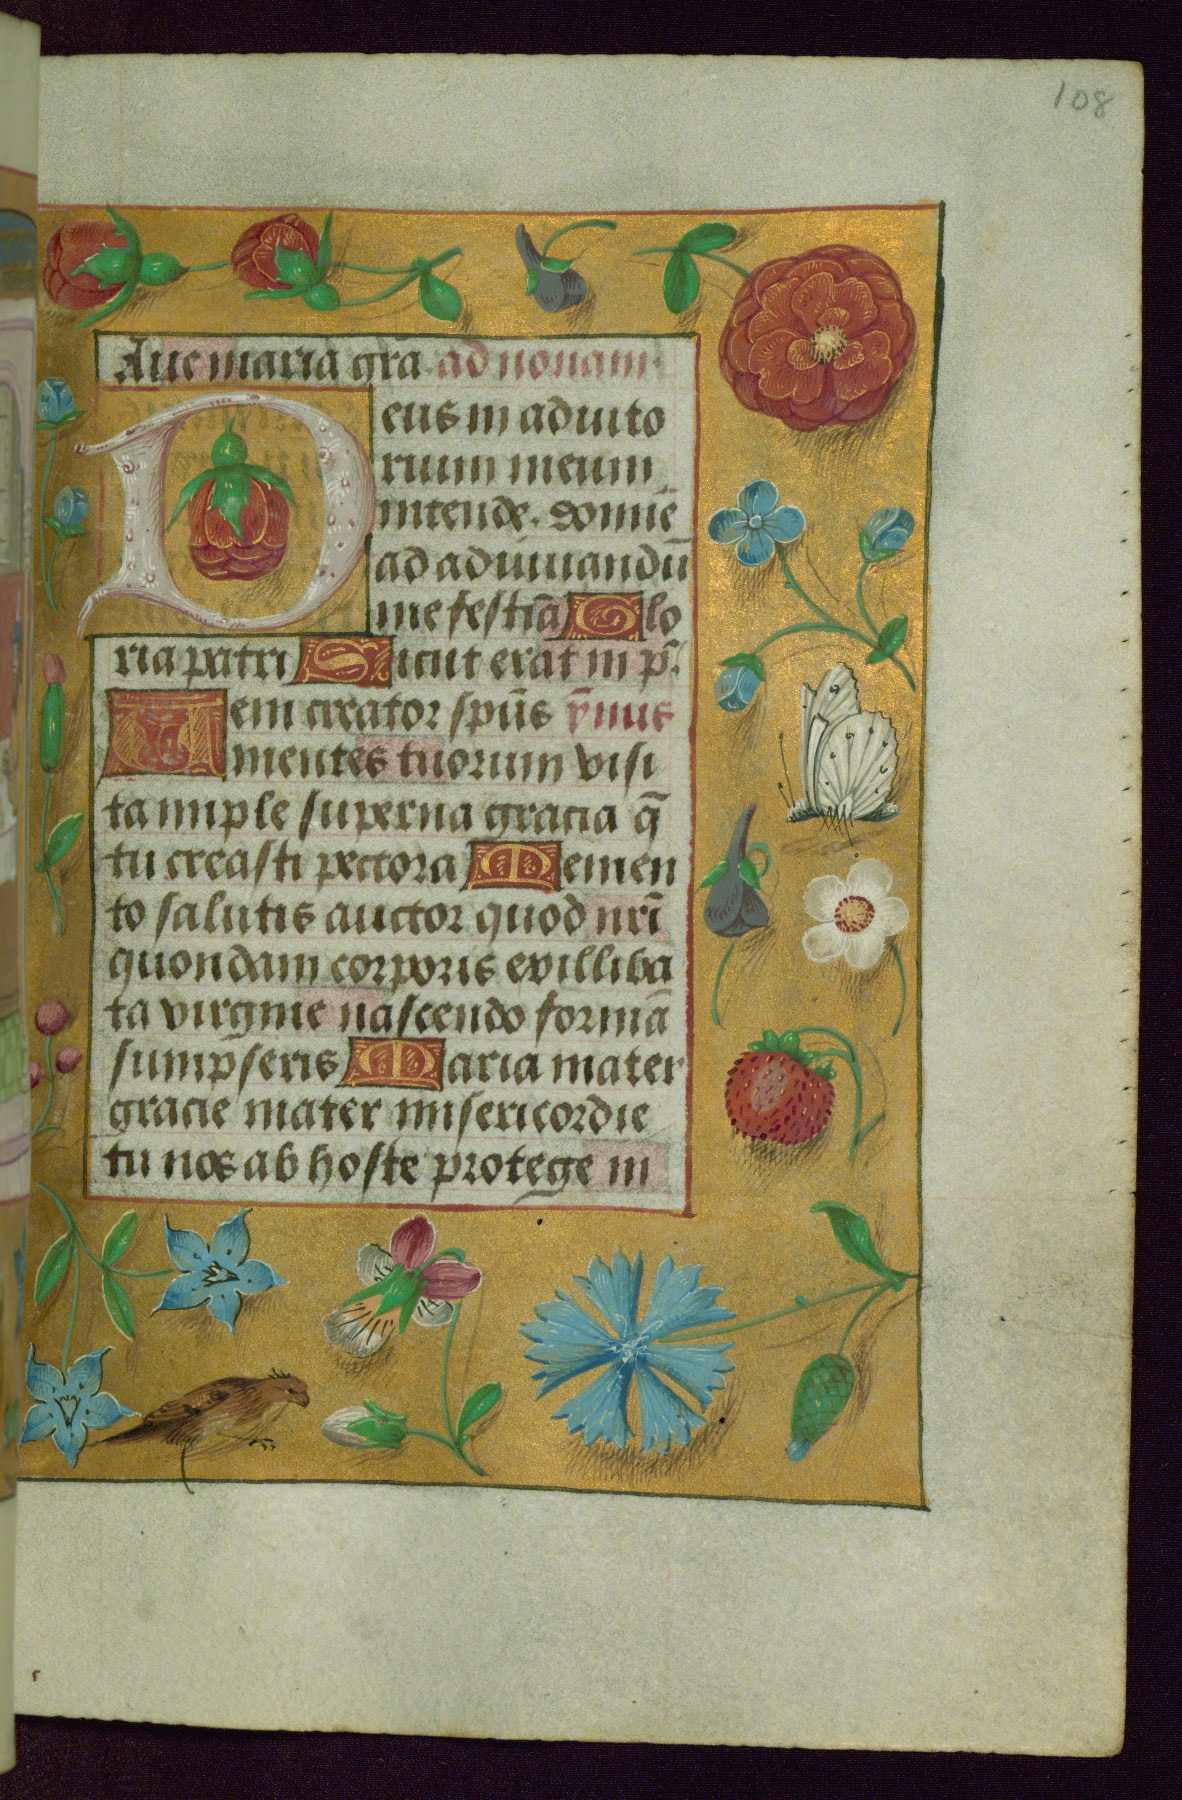 108
Aue maria gra. ad nonam.
Deus in adiuto
rium meum
intende. domine
ad adiuuandū
me festiā Glo
ria patri Sicut erat in p̄.
Ueni creator spūs ymus
mentes tuorum visi
ta imple superna gracia q̄
tu creasti pectora Memen
to salutis auctor quod nrī
quondam corporis exilliba
ta virgine nascendo formā
sumpseris Maria mater
gracie mater misericordie
tu nos ab hoste protege in